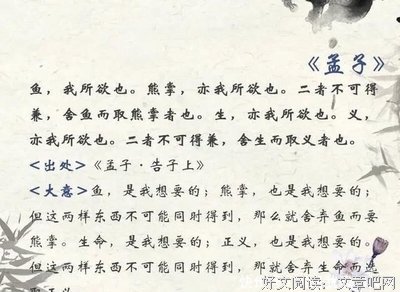 《孟子》
鱼，我所欲也。熊掌，亦我所欲也。二者不可得
兼，舍鱼而取熊掌者也。生，亦我所欲也。义，
亦我所欲也。二者不可得兼，舍生而取义者也。
<出处>《孟子·告子上》
<大意>鱼，是我想要的；熊掌，也是我想要的；
但这两样东西不可能同时得到，那么就舍弃鱼而要
熊掌。生命，是我想要的；正义，也是我想要的。
但这两样东西不可能同时得到，就舍弃生命而选
好文阅读：文章吧网